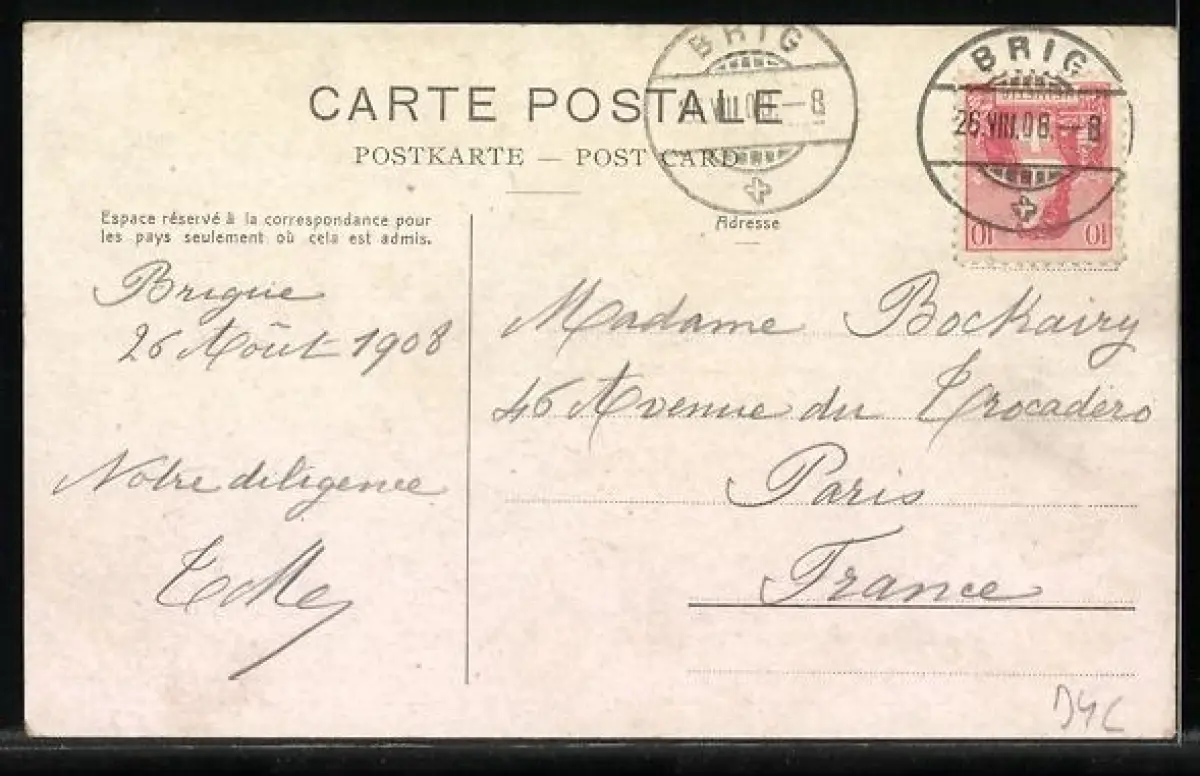 CARTE POSTALE
POSTKARTE — POST CARD
BRIG
VIII.08.—8
BRIG
26.VIII.08.—8
HELVETIA
10 10
Espace réservé à la correspondance pour
les pays seulement où cela est admis.
Adresse
Brigue
26 Août 1908
Notre diligence
Madame Bockairy
46 Avenue du Trocadéro
Paris
France